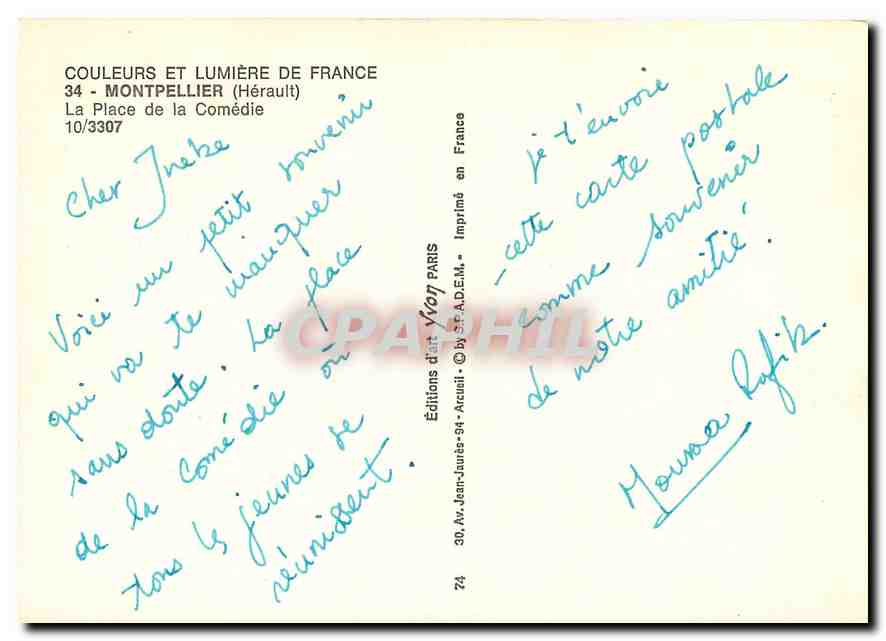 COULEURS ET LUMIÈRE DE FRANCE
34 - MONTPELLIER (Hérault)
La Place de la Comédie
10/3307
Cher Ineke
Voici un petit souvenir
qui va te manquer
sans doute. La place
de la comédie où
tous les jeunes se
réunissent.
Éditions d'art Yvon PARIS
30, Av. Jean-Jaurès • 94 - Arcueil • © by S.P.A.D.E.M. • Imprimé en France
74
je t'envoie
cette carte postale
comme souvenir
de notre amitié.
Moussa Rafik.
CPAPHIL